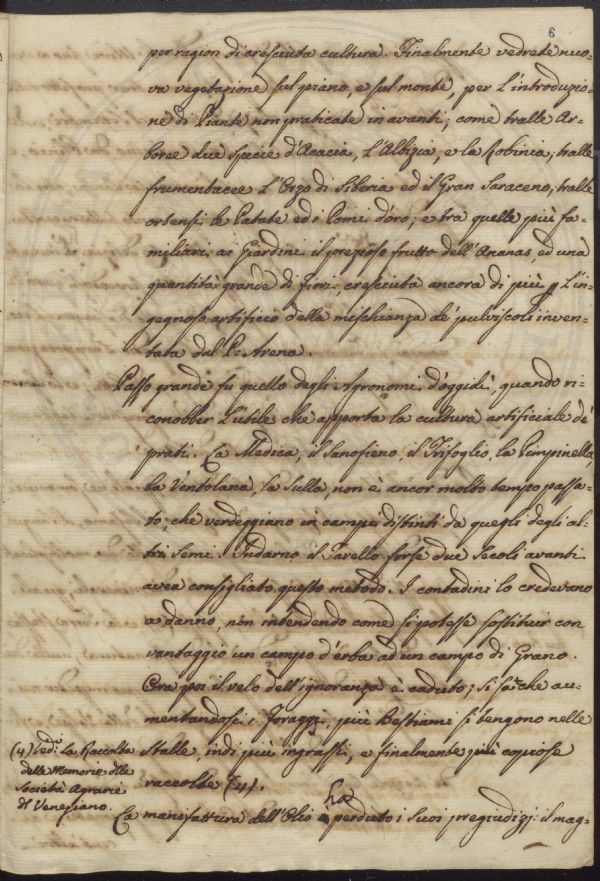 6
per ragion di cresciuta cultura. Finalmente vedrete nuo-
va vegetazione sul piano, e sul monte, per l'introduzio-
ne di Piante non praticate in avanti; come tralle Ar-
boree due specie d'Acacia, L'Albizia, e la Robinia; tralle
frumentacee L'Orzo di Siberia ed il Gran Saraceno; tralle
ortensi le Patate ed i Pomi d'oro; e tra quelle più fa-
miliari ai Giardini il prezioso frutto dell'Ananas, ed una
quantità grande di fiori, cresciuta ancora di più L'in-
gegnoso artificio della mischianza de' pulviscoli inven-
tata dal P. Arena.
Passo grande fu quello degli Agronomi d'oggidì, quando ri-
conobber L'utile che apporta la cultura artificiale de'
prati. La Medica, il Sanofieno, il Trifoglio, la Pimpinella,
la Ventolana, la Sulla, non è ancor molto tempo passa-
to, che verdeggiano in campi distinti da quegli degli al-
tri semi. Indarno il Tarello forse due secoli avanti
avea consigliato questo metodo. I contadini lo credevano
a danno, non intendendo come si potesse sostituir con
vantaggio un campo d'erba ad un campo di Grano.
Ora poi il velo dell'ignoranza è caduto; si sa che au-
mentandosi i foraggi, più Bestiami si tengono nelle
Stalle, indi più ingrassi, e finalmente più copiose
raccolte (4).
(4) Ved. la Raccolta
delle Memorie delle
Società Agrarie
di Venesiano.
La manifattura dell'Olio ha perduto i suoi pregiudizj: il mag-